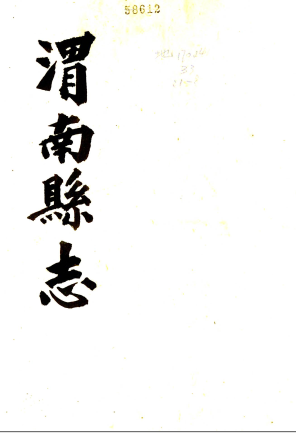 58612
渭南縣志